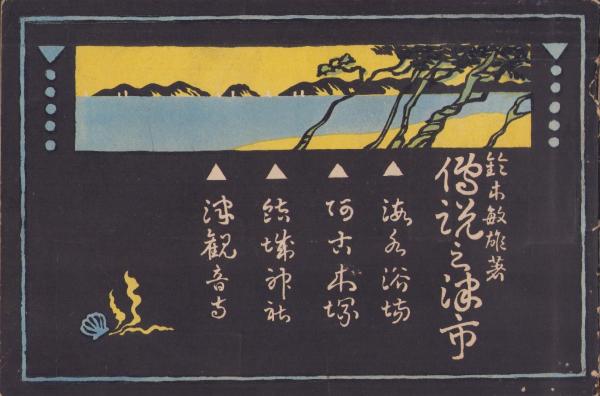 鈴木敏雄著
傳説之津市
海水浴場
阿古木塚
結城神社
津観音寺